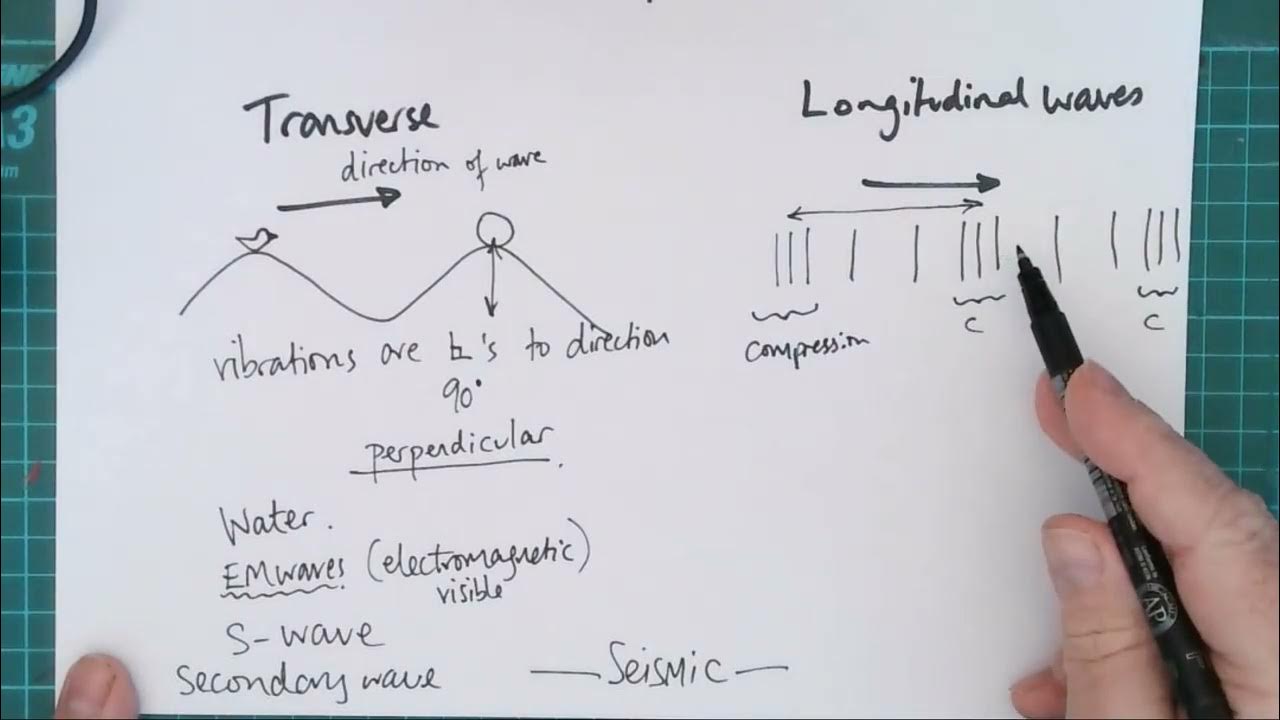 Transverse
direction of wave
vibrations are ⊾'s to direction
90°
perpendicular.
Water.
EM waves (electromagnetic)
visible
S-wave
Secondary wave
Seismic
Longitudinal waves
compression
C
C
3
AP